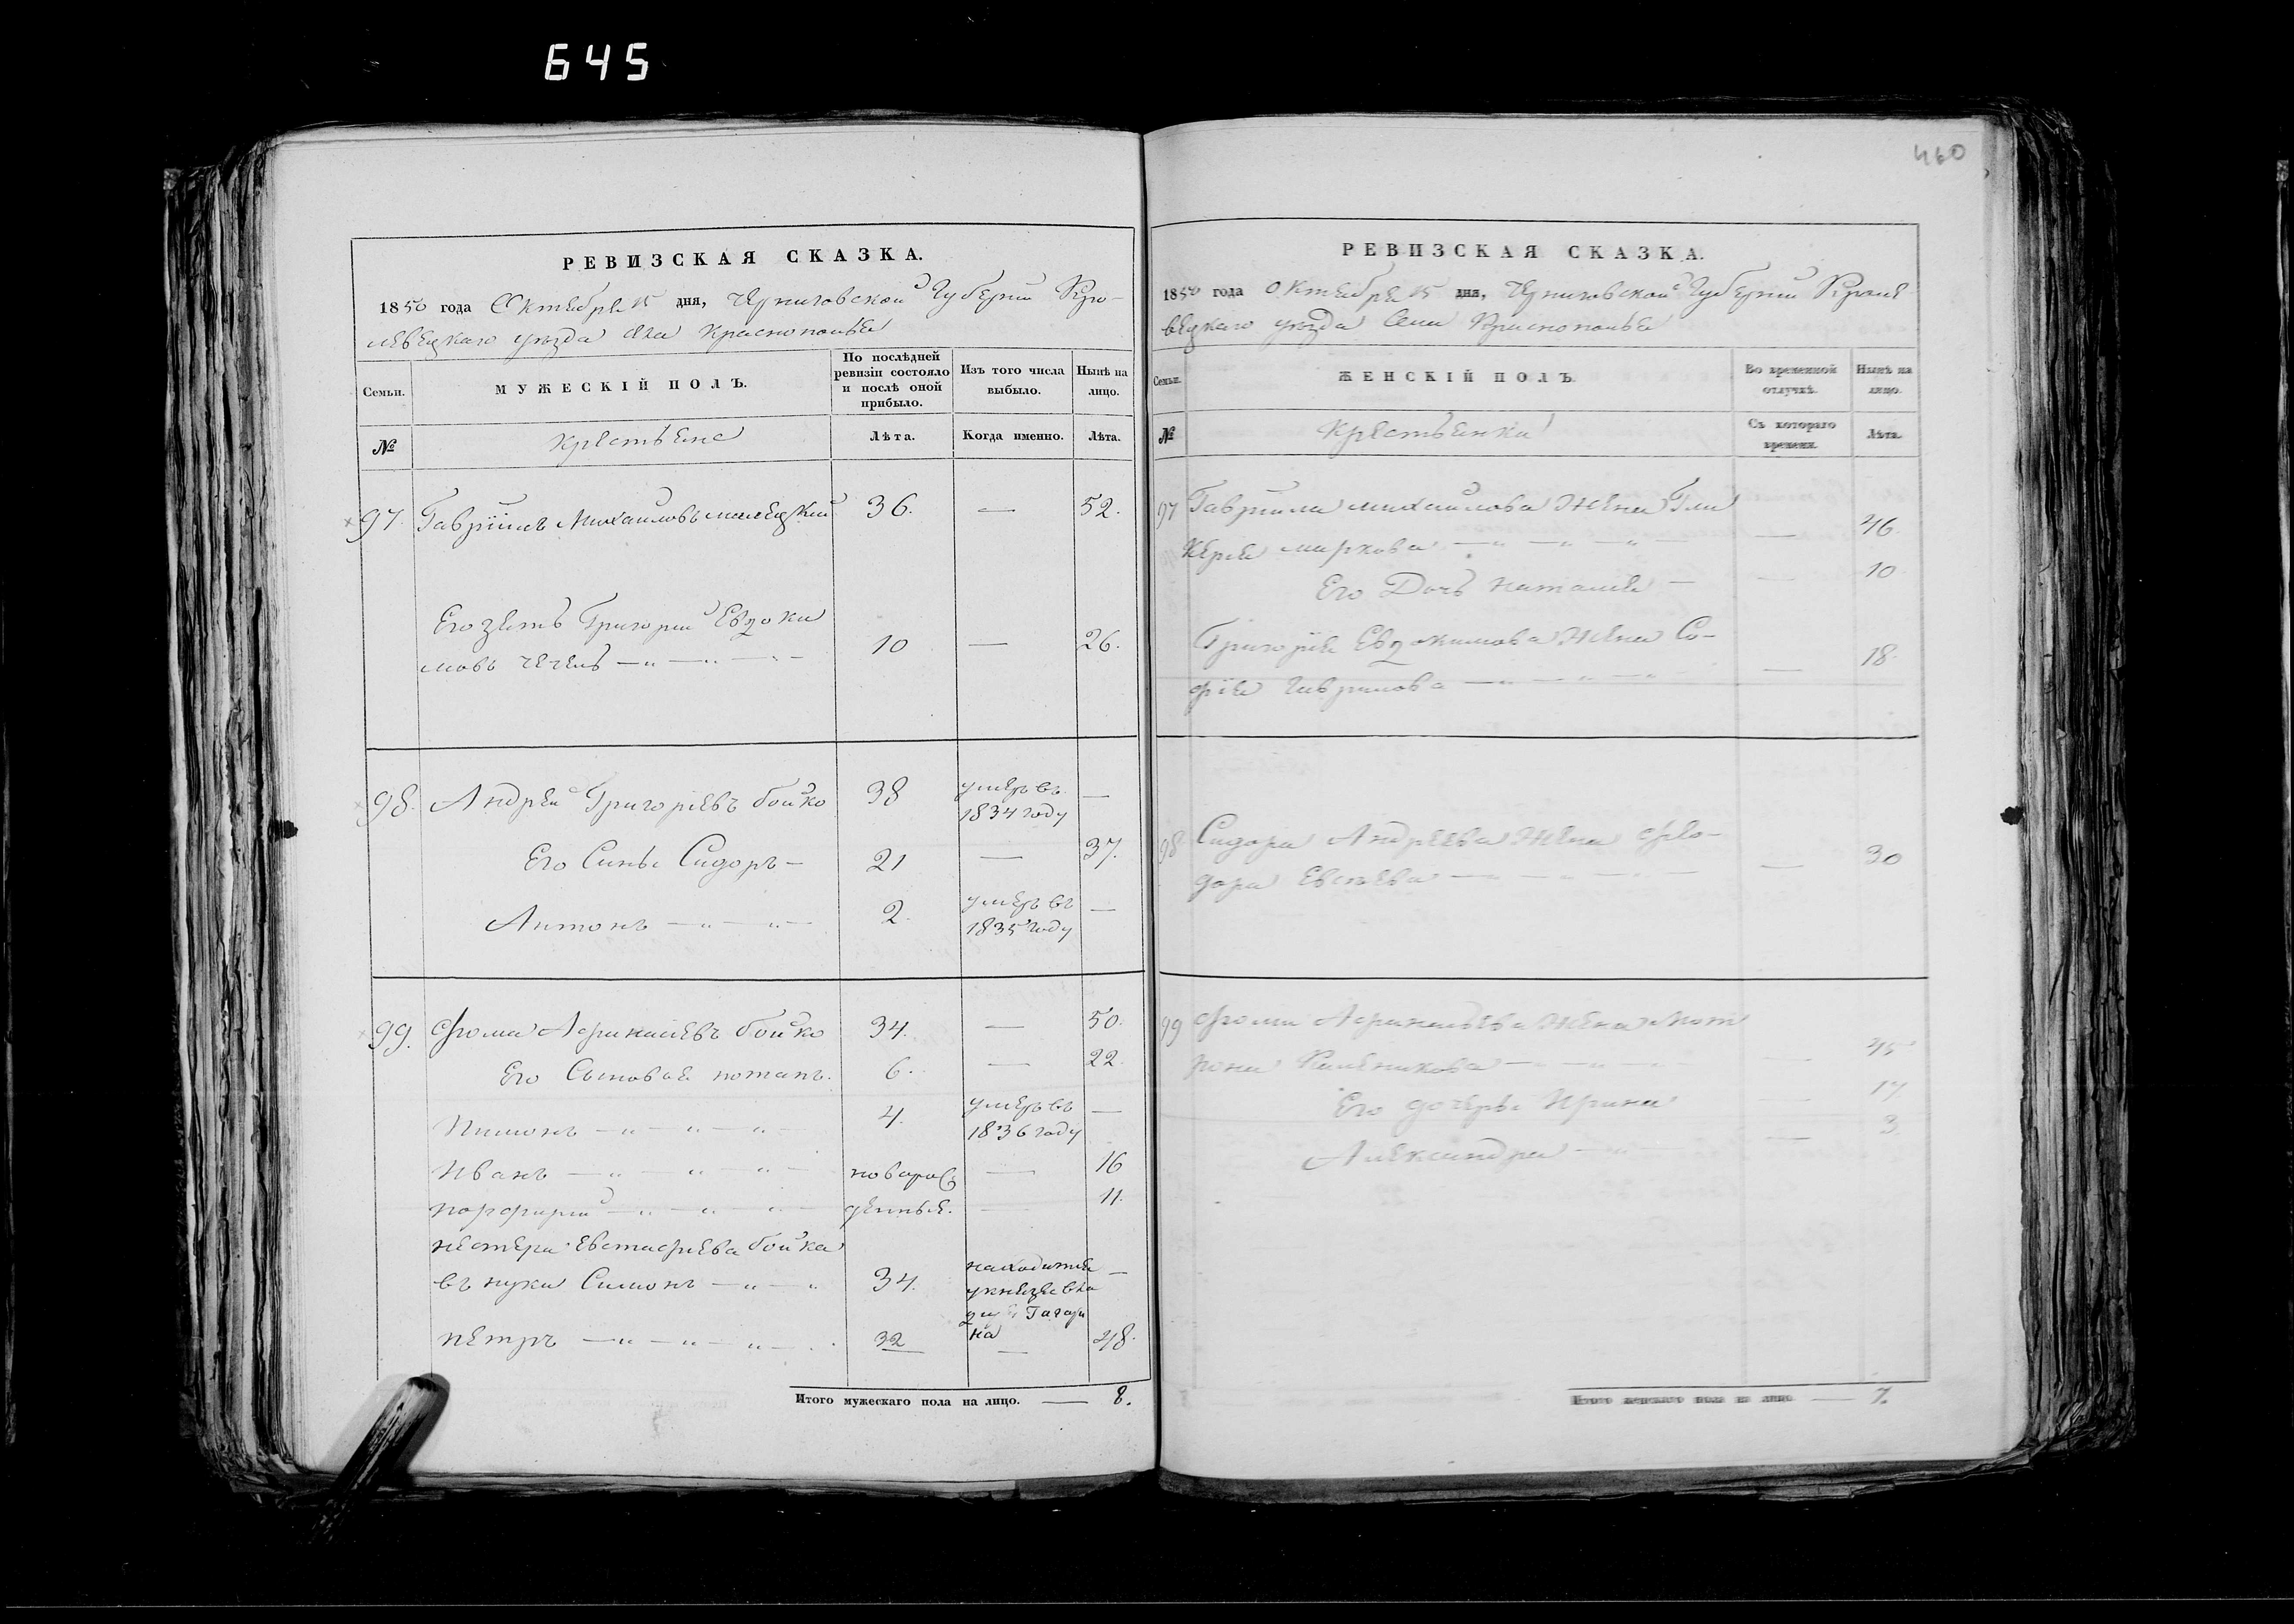 645
460
РЕВИЗСКАЯ СКАЗКА.
1850 года Октября 15 дня, Черниговской Губернии Кро-
левецкаго уезда Села Краснополья
Семьи.
МУЖЕСКІЙ ПОЛЪ.
По послѣдней
ревизіи состояло
и послѣ оной
прибыло.
Изъ того числа
выбыло.
Нынѣ на
лицо.
№
Крестьяне
Лѣта.
Когда именно.
Лѣта.
97. Гавріилъ Михайловъ 36. — 52.
Его зять Григорій Евдоки
мовъ Чечель — " — " — 10 — 26.
98. Андрей Григоріевъ бойко 38 умеръ въ —
1834 году
Его Синъ Сидоръ — 21 — 37.
Антонъ — " — " — 2. умеръ въ —
1835 году
99. Фома Афанасіевъ бойко 34. — 50.
Его Сыновья потапъ. 6. — 22.
Пимонъ — " — " — " — 4. умеръ въ —
1836 году
Иванъ — " — " — " — новорож — 16
порфирій — " — " — " — денныя. — 11.
нестера Евстафіева бойка
внуки Симонъ — " — " 34. находится —
у князя
Гагари
на
петръ — " — " — " — 32 — 48.
Итого мужескаго пола на лицо. — 8.
РЕВИЗСКАЯ СКАЗКА.
1850 года Октября 15 дня, Черниговской Губернии Кроле
вецкаго уезда Села Краснополья
Семьи.
ЖЕНСКІЙ ПОЛЪ.
Во временной
отлучкѣ.
Нынѣ на
лицо.
№
Крестьянки
Съ котораго
времени.
Лѣта.
97 Гавриила михайлова Жена Гли
керія маркова — " — " — " — — 46.
Его Дочь наталия — — 10
Григорія Евдокимова Жена Со-
фія Гаврилова — " — " — " — 18.
98 Сидора Андреева Жена Фео-
дора Евсѣева — " — " — " — — 30
99 Фомы Афанасьева Жена Мот
рона — " — " — " — 45
Его дочеры Ирина — 17
Александра — " — — 3.
Итого женскаго пола на лицо — 7.